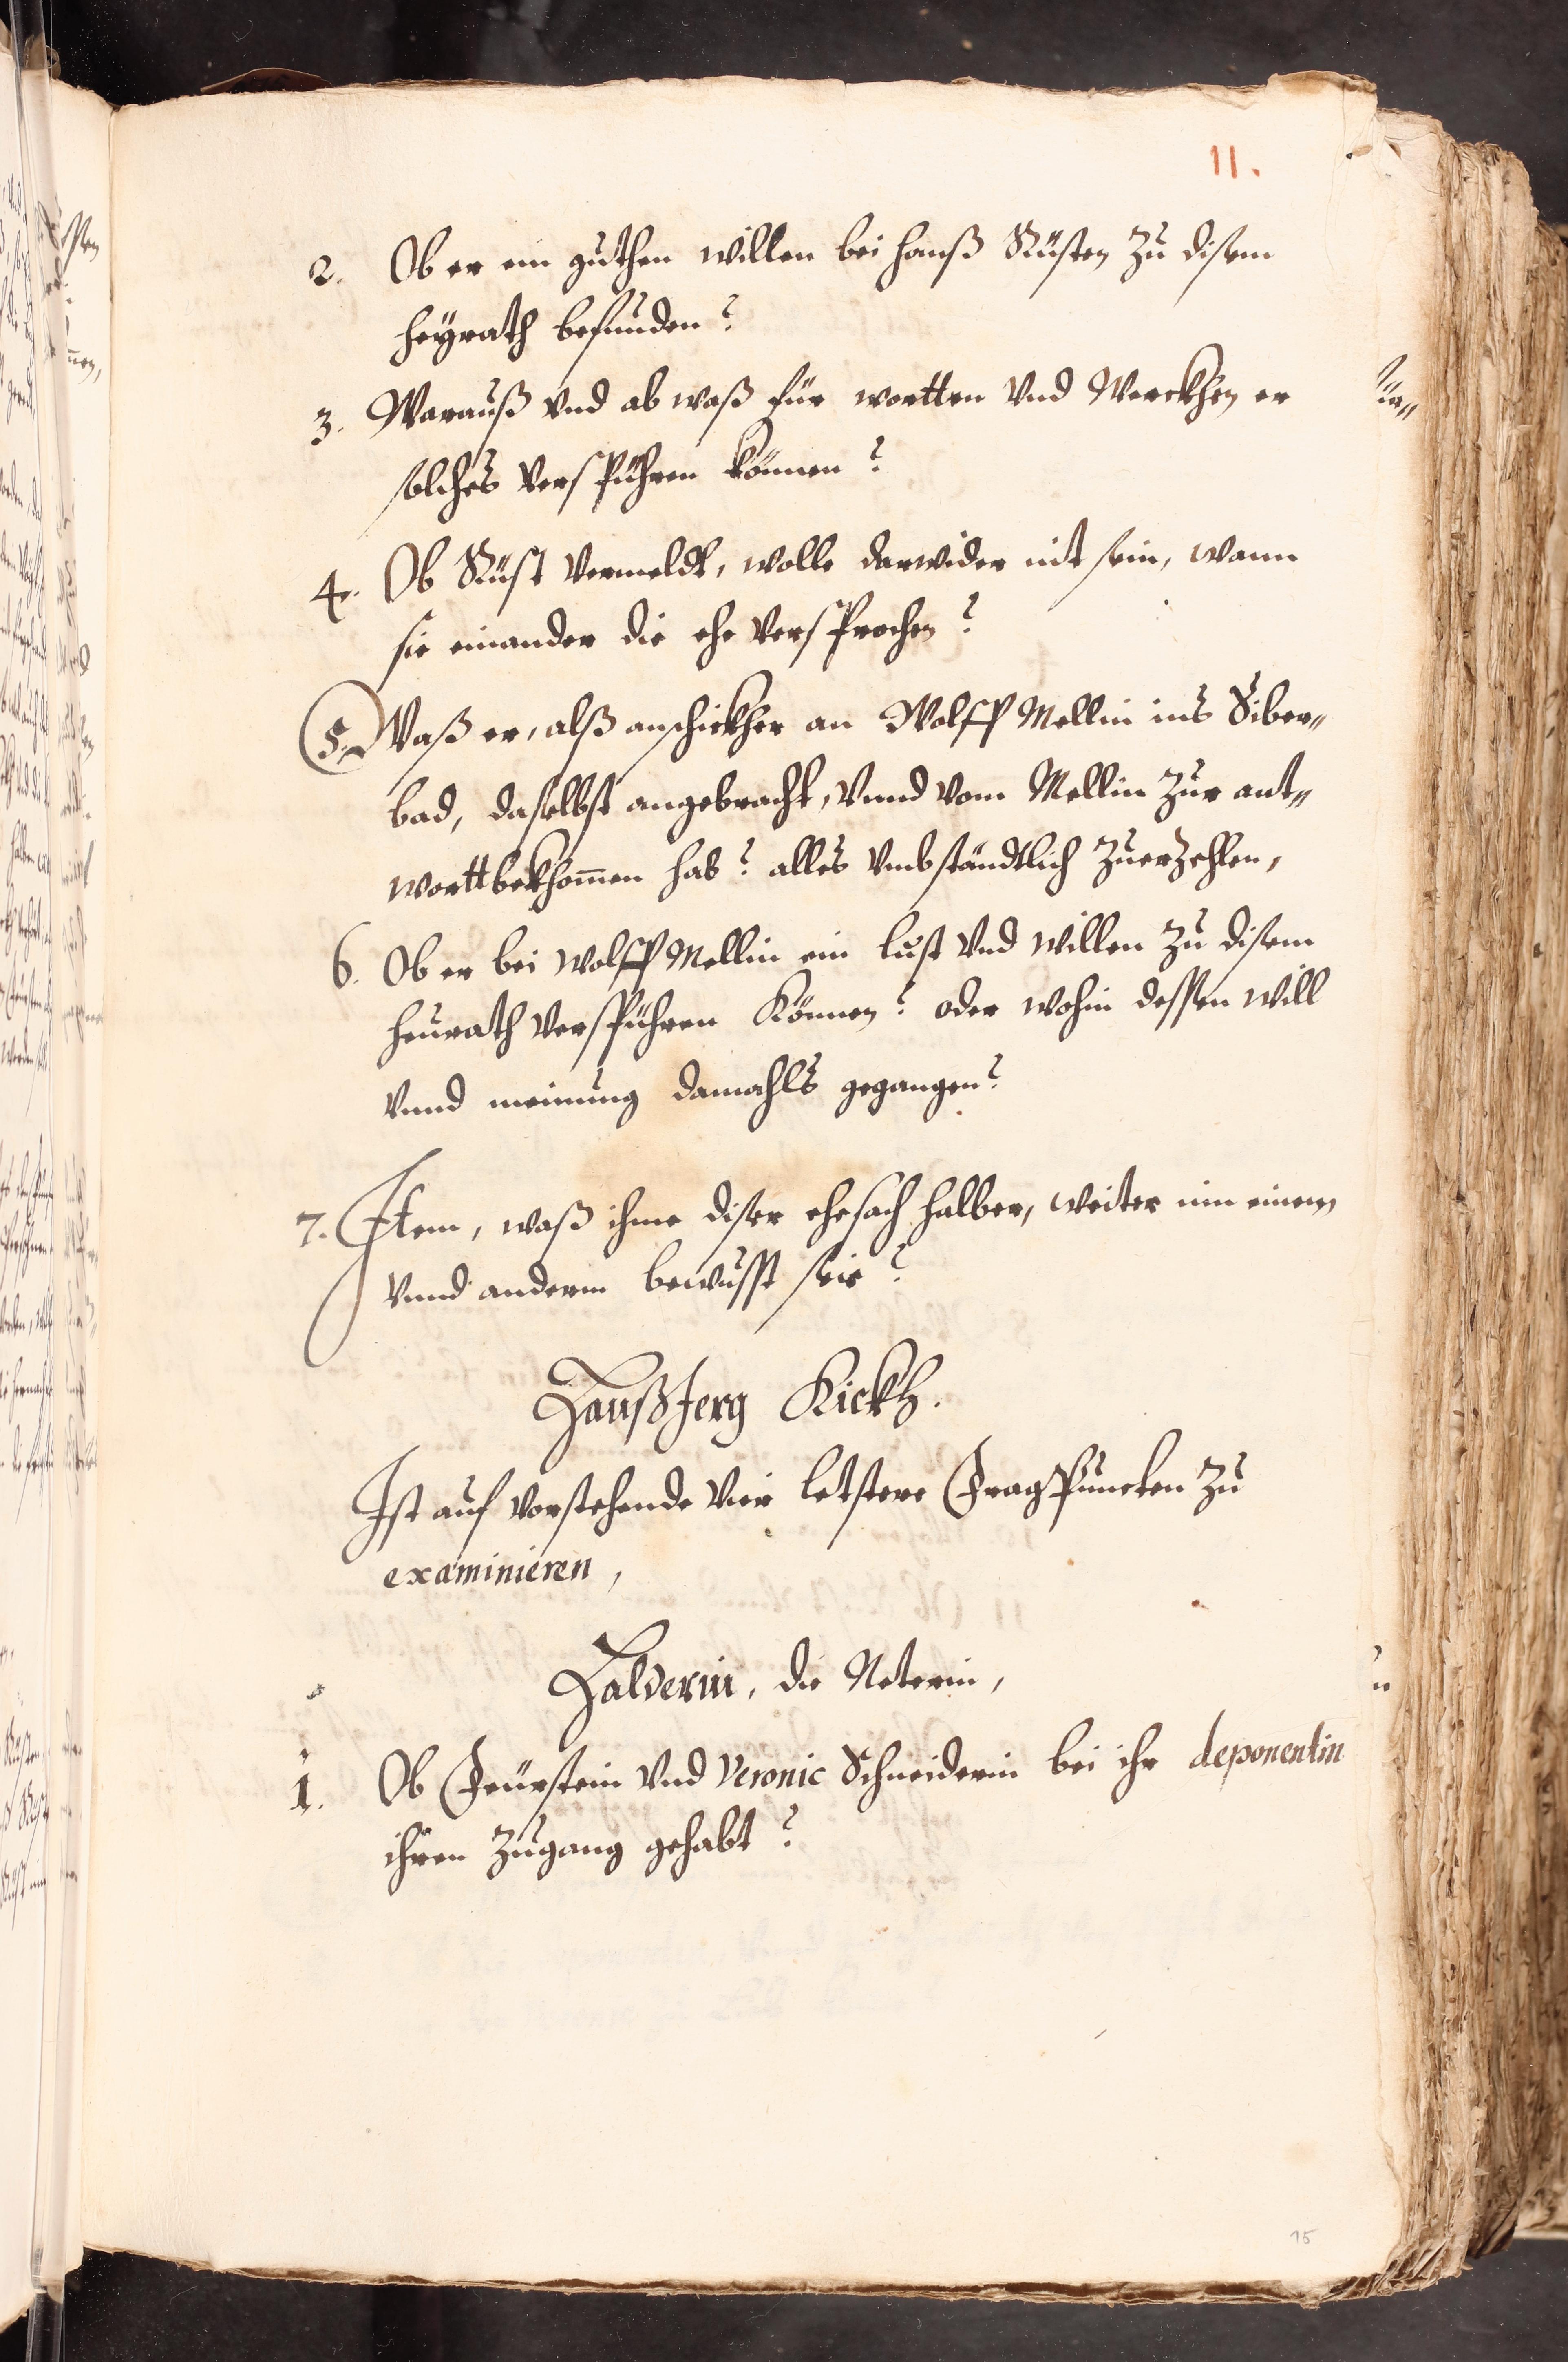 11.
2. Ob er ein guthen willen bei Hanß Küsten zu disem
heyrath befunden?
3. Warauß vnd ab waß für wortten vnd Werckhen er
solches verspühren können?
4. Ob Küst vermeldt, wolle darwider nit sein, wann
sie einander die ehe versprochen?
5. Waß er, alß anschickher an Wolff Mellin ins Siber„
bad, daselbst angebracht, vnnd vom Mellin zur ant„
wortt bekhommen hab? alles vmbständtlich zuerzehlen,
6. Ob er bei Wolff Mellin ein lust vnd willen zu disem
heurath verspühren können? oder wohin dessen will
vnnd meinung damahls gegangen?
7. Item, waß ihme diser ehesach halber, weiter inn einem
vnnd anderm bewusst seie?
Hanß Jerg Kickh.
Ist auf vorstehende vier letstere Fragpuncten zu
examinieren,
Halderin, die Neterin,
1. Ob Feürstein vnd Veronic Schneiderin bei ihr deponentin
ihren zugang gehabt?
15